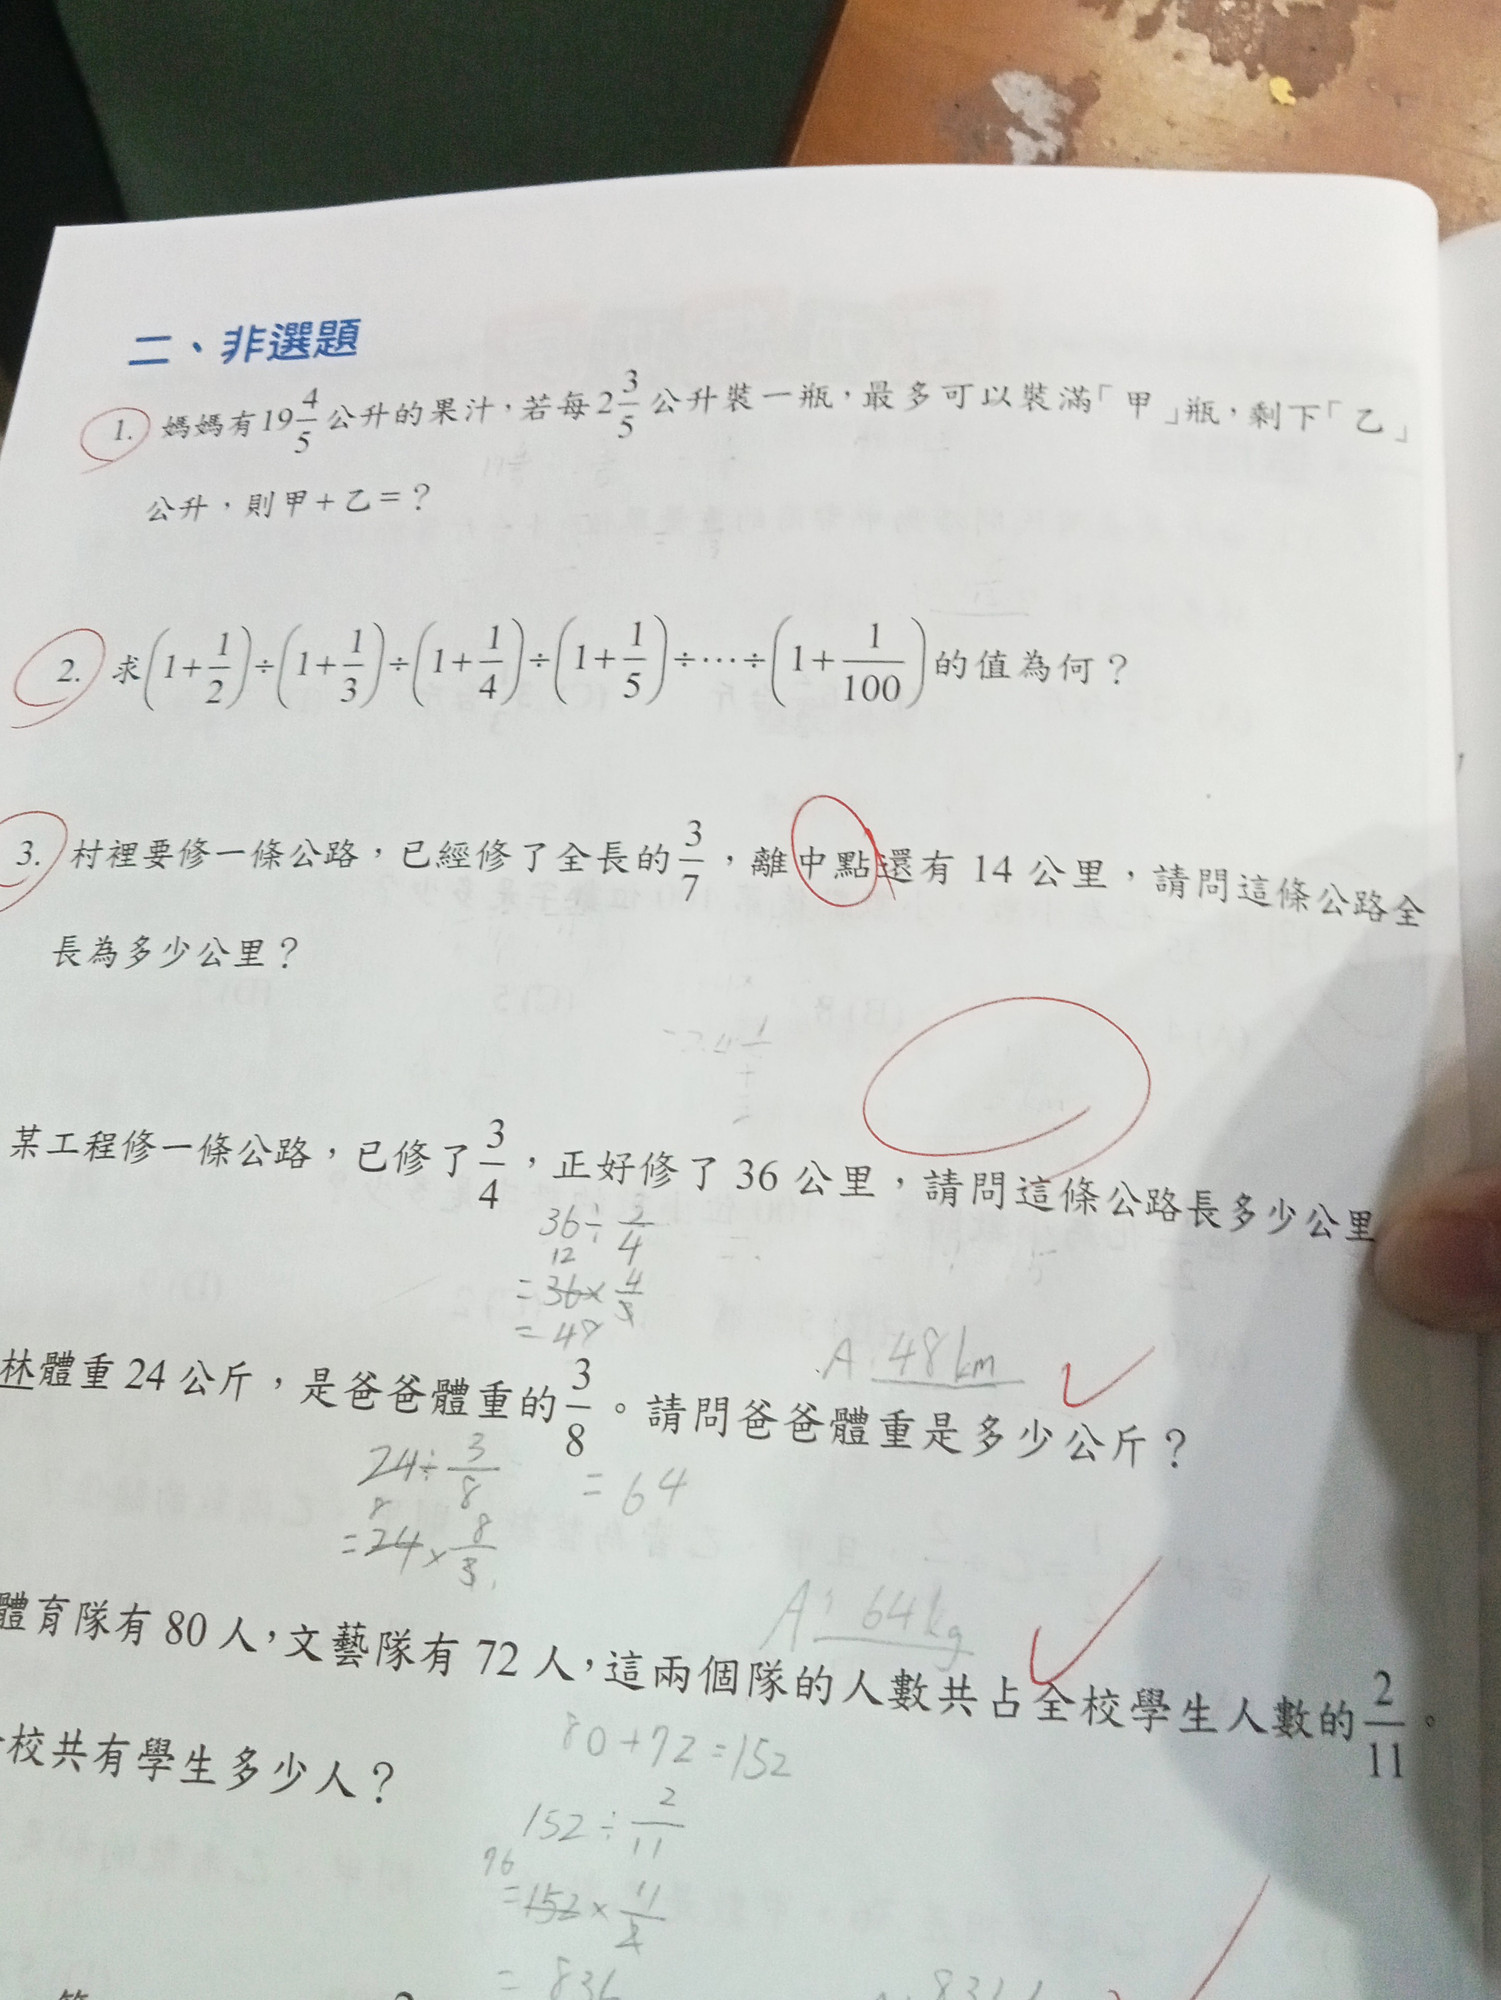 二、非選題
1. 媽媽有19 4/5 公升的果汁，若每2 3/5 公升裝一瓶，最多可以裝滿「甲」瓶，剩下「乙」
公升，則甲+乙=？
2. 求(1+1/2)÷(1+1/3)÷(1+1/4)÷(1+1/5)÷…÷(1+1/100)的值為何？
3. 村裡要修一條公路，已經修了全長的3/7，離中點還有 14 公里，請問這條公路全
長為多少公里？
某工程修一條公路，已修了3/4，正好修了 36 公里，請問這條公路長多少公里
36÷3/4
12
=36×4/3
=48
A:48km
林體重 24 公斤，是爸爸體重的3/8。請問爸爸體重是多少公斤？
24÷3/8 =64
8
=24×8/3
A: 64kg
體育隊有 80 人，文藝隊有 72 人，這兩個隊的人數共占全校學生人數的2/11。
校共有學生多少人？
80+72=152
152÷2/11
76
=152×11/2
=836